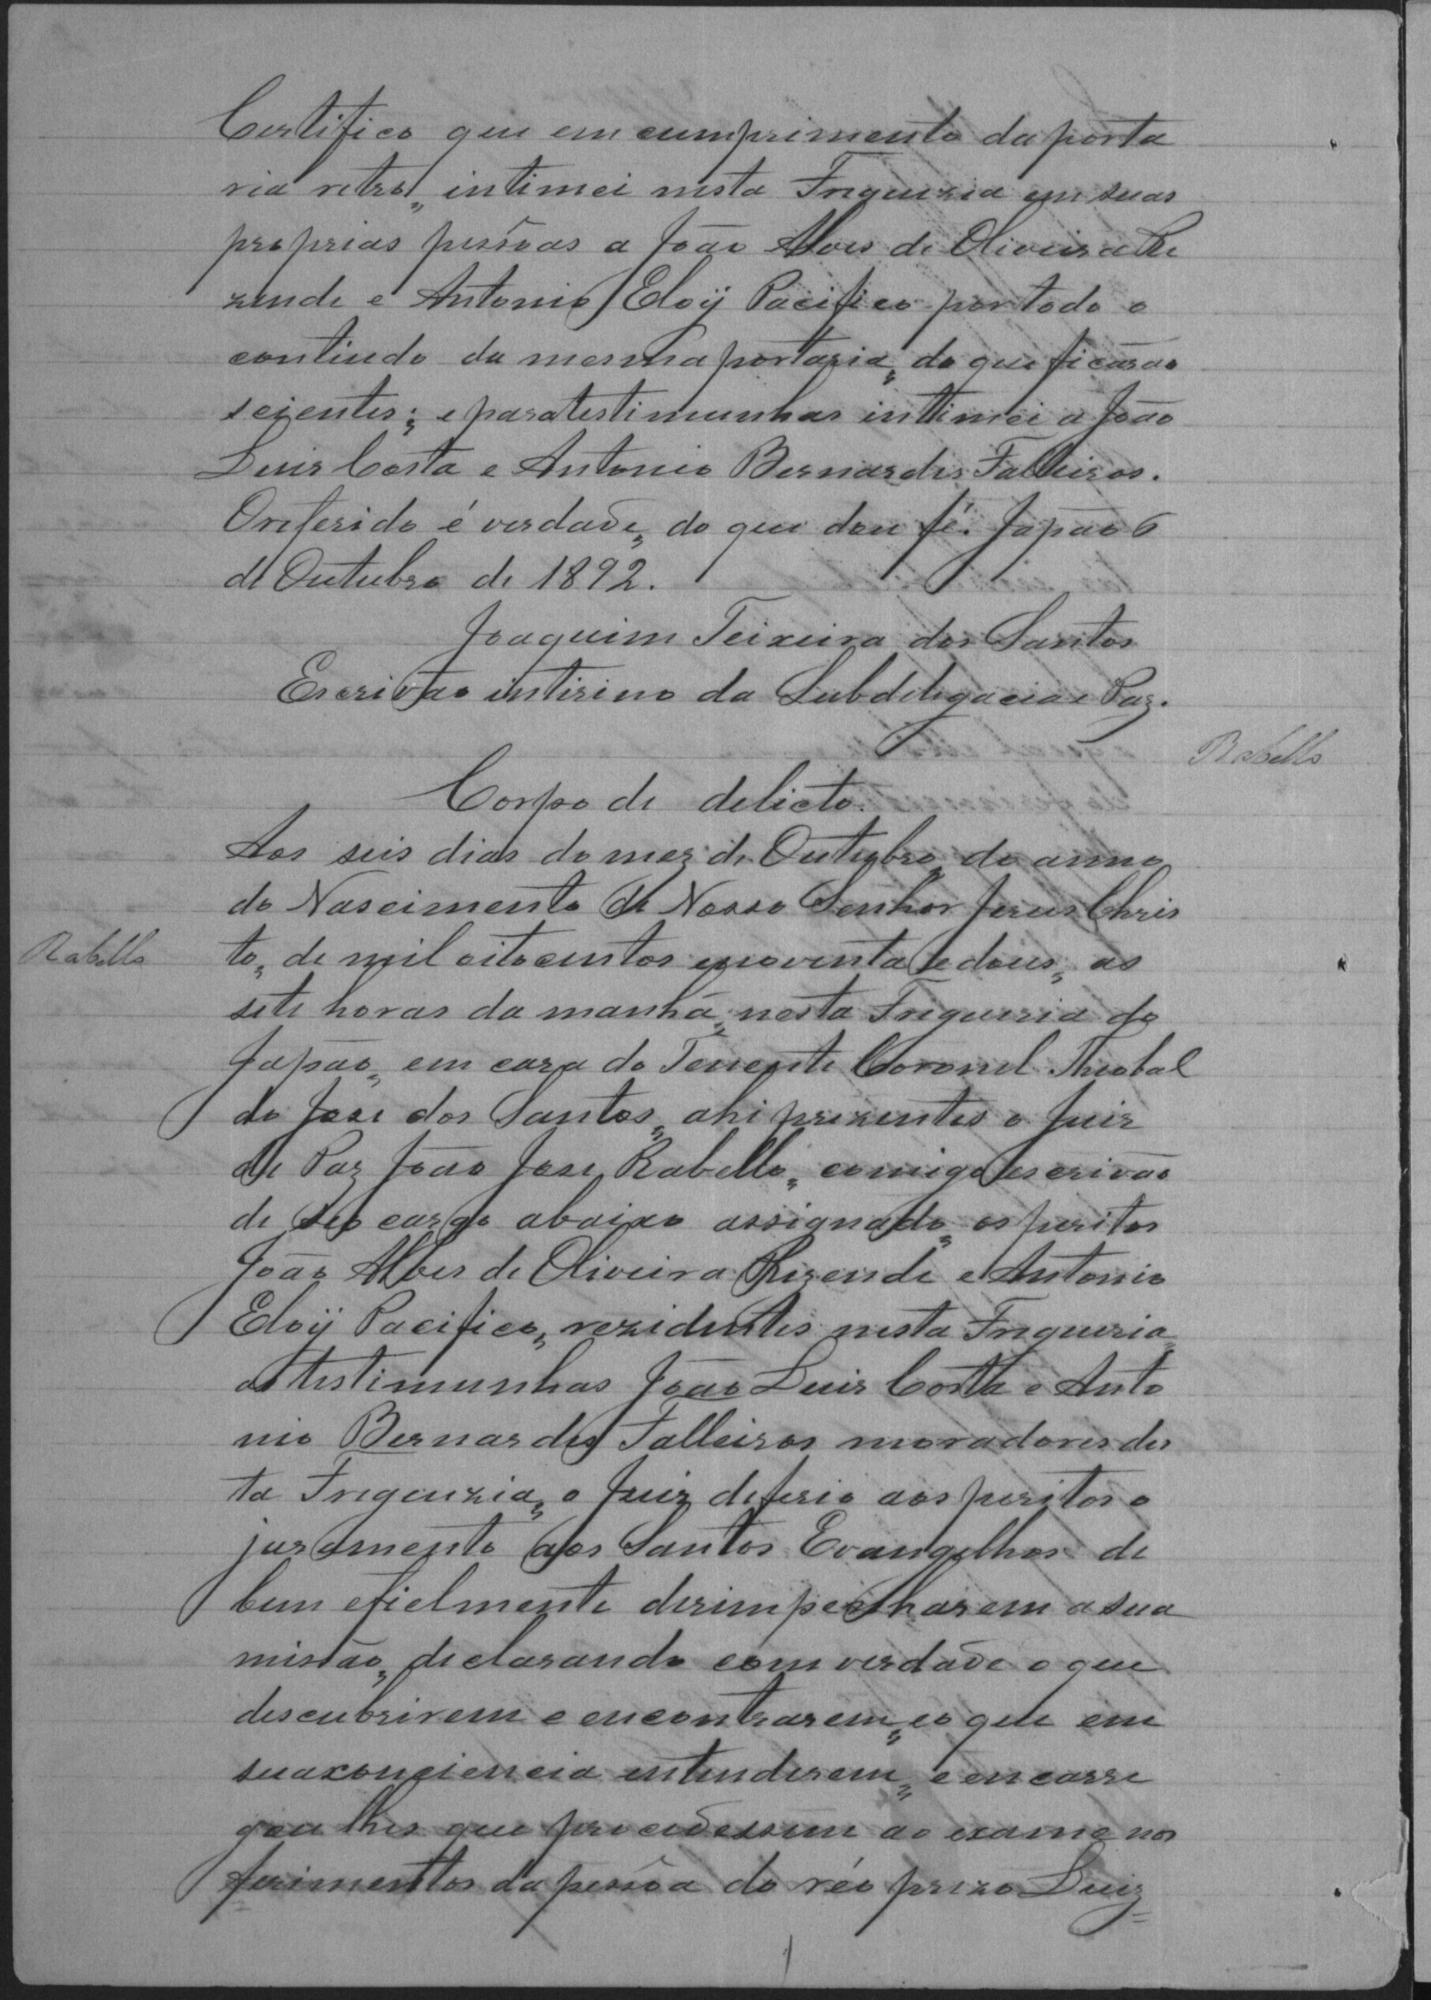 Certifico que em cumprimento da porta
ria retro, intimei nesta Freguezia em suas
proprias pessôas a João Alves de Oliveira Re
zende e Antonio Eloÿ Pacifico por todo o
contiudo da mesma portaria, do que ficárão
scientes; e para testimunhas intimei a João
Luis Costa e Antonio Bernardes Falleiros.
O referido é verdade, do que dou fé. Japão 6
de Outubro de 1892.
Joaquim Teixeira dos Santos
Escrivão intirino da Subdelegacia e Paz.
Rabello
Corpo de delicto.
Aos seis dias do mez de Outubro, do anno
do Nascimento de Nosso Senhor Jesus Chris
Rabello
to, de mil oitocentos e noventa e dous, as
sete horas da manhã, nesta Fregueria do
Japão, em caza do Tenente Coronel Theobal
do Jose dos Santos, ahi prezentes o Juiz
de Paz João Jose Rabello, comigo escrivão
de seo cargo abaixo assignado, os peritos
João Alves de Oliveira Rezende e Antonio
Eloÿ Pacifico, rezidentes nesta Fregueria,
as testimunhas João Luis Costa e Anto
nio Bernardes Falleiros moradores des
ta Freguezia, o Juiz deferio aos peritos o
juramento aos Santos Evangelhos de
bem e fielmente dezimpenharem a sua
missão, declarando com verdade o que
descubrirem e encontrarem, e o que em
sua conciencia entenderem, e encarre
gou lhes que procedessem ao exame nos
ferimentos da pessôa do réo prezo Luiz=